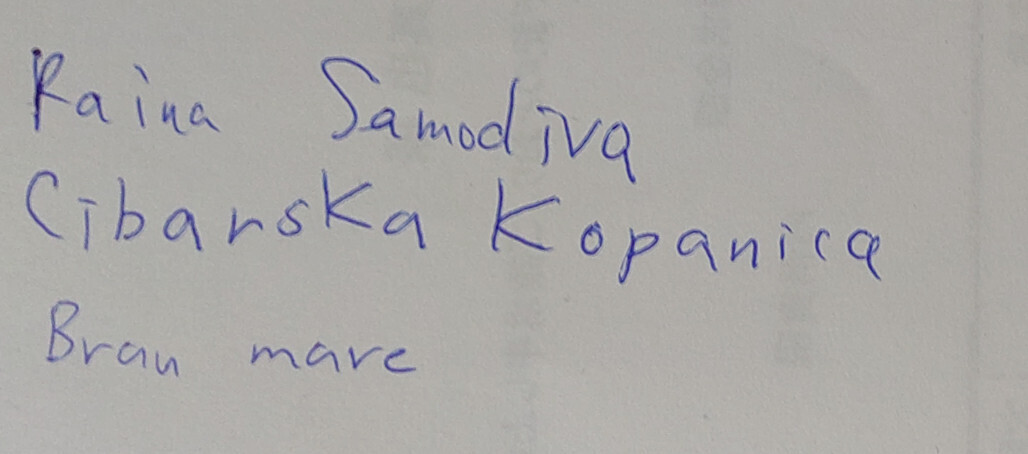 Raina Samodiva
Cibarska Kopanica
Brau mare